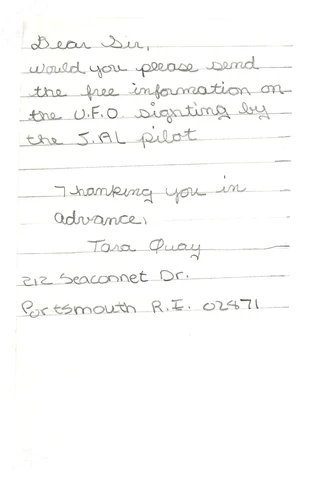 Dear Sir,
would you please send
the free information on
the U.F.O sighting by
the J.AL pilot
Thanking you in
advance,
Tara Quay
212 Seaconnet Dr.
Portsmouth R.I. 02871